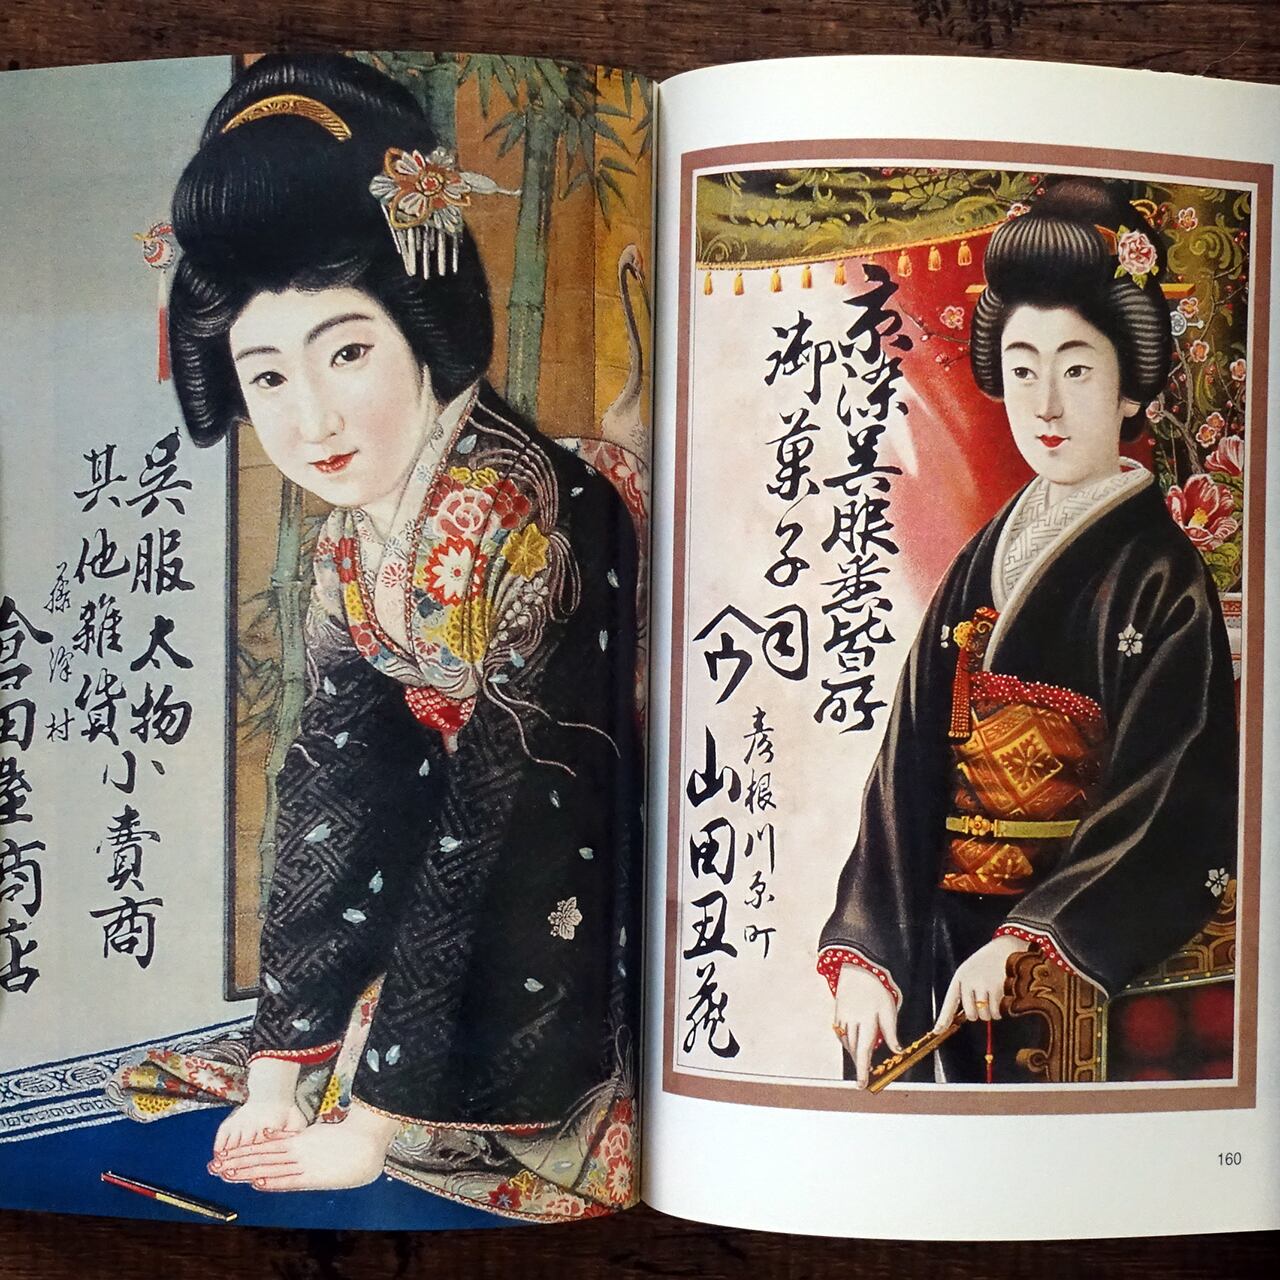 呉服太物
其他雜貨小賣商
村
田屋商店
京染呉服悉皆所
御菓子司
彦根川原町
山田丑蔵
160